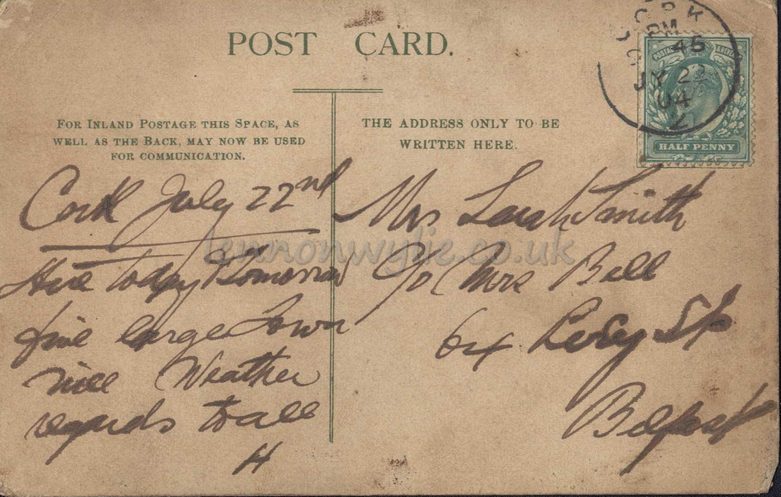 POST CARD.
FOR INLAND POSTAGE THIS SPACE, AS
WELL AS THE BACK, MAY NOW BE USED
FOR COMMUNICATION.
THE ADDRESS ONLY TO BE
WRITTEN HERE.
CORK
PM
45
JY 22
04
HALF PENNY
Cork July 22nd
Here today Tomorrow
fine large Town
nice Weather
regards to all
H
Mrs Sarah Smith
c/o Mrs Bell
64 St
Belfast
lennonwylie.co.uk